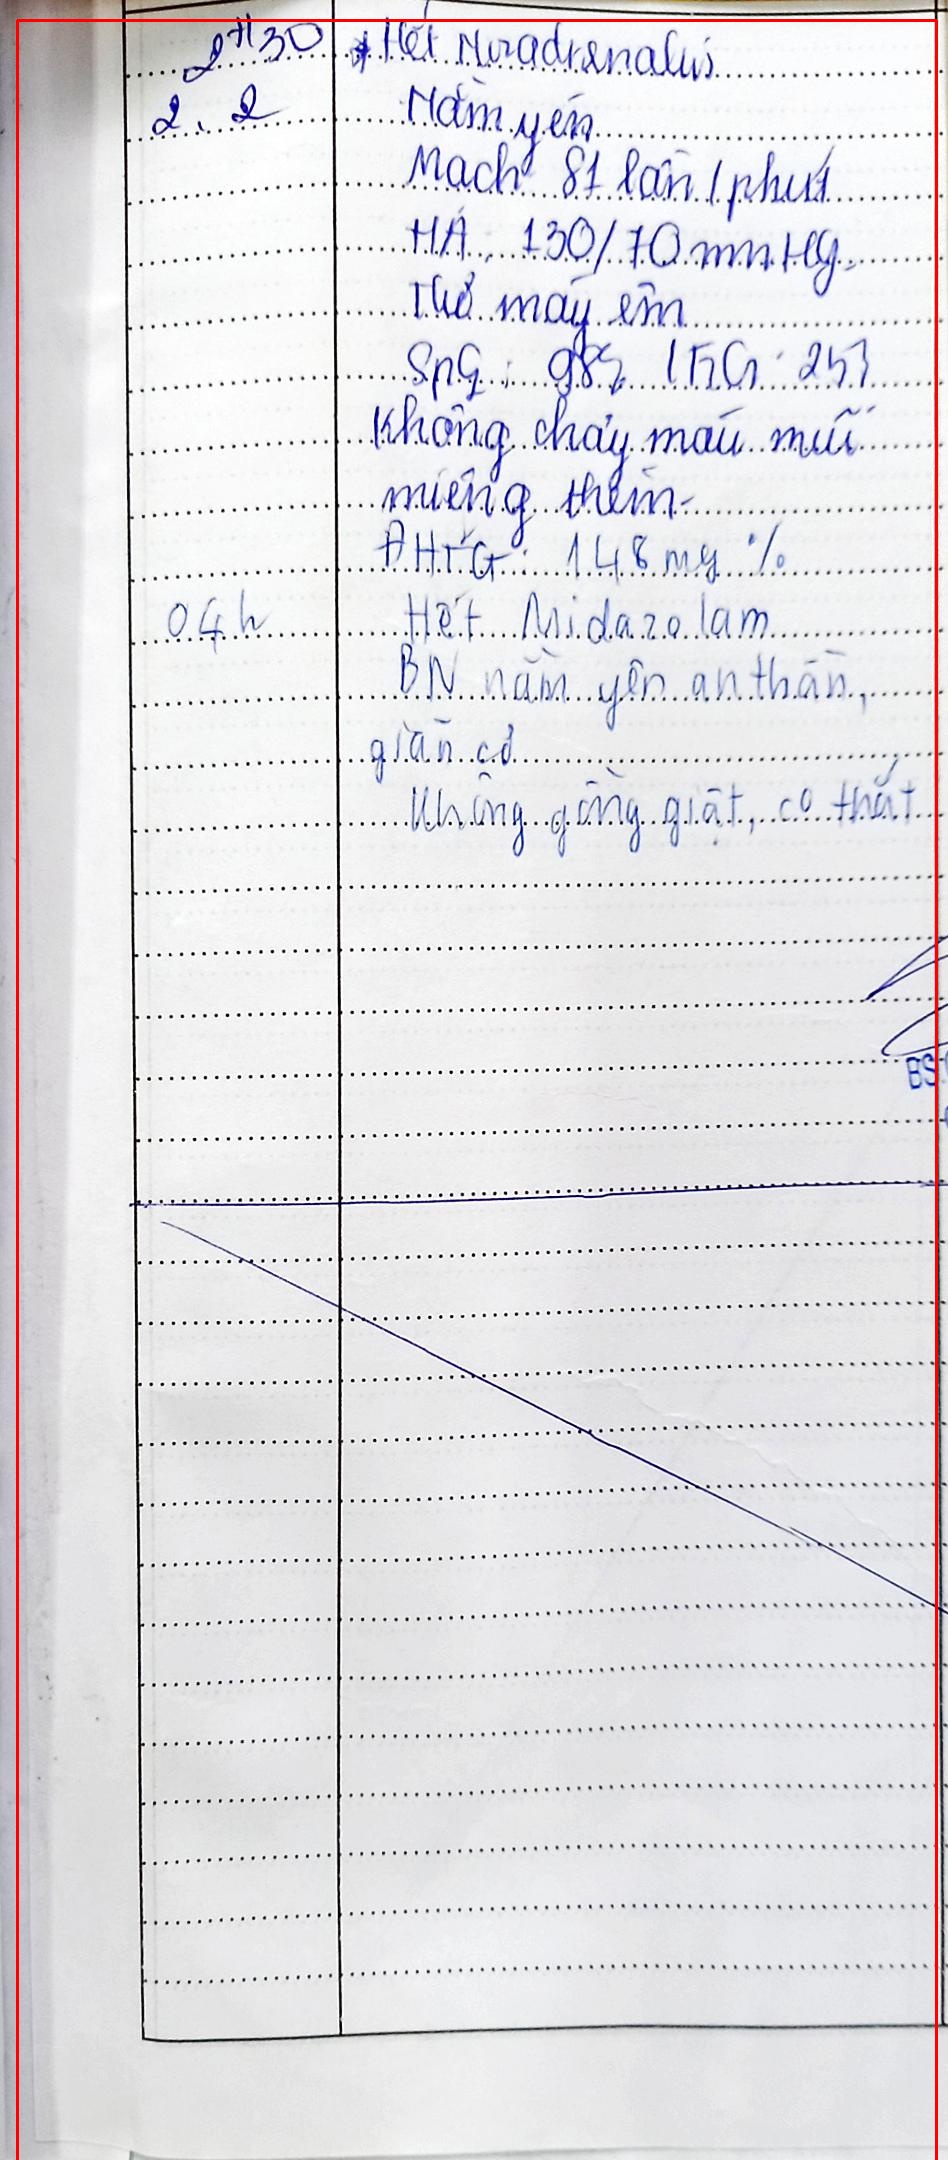 2H30 * Hết Noradrenalin
2.2 Nằm yên
Mạch 81 lần/phút
HA: 130/70 mmHg
Thở máy êm
SpO2: 98%
Không chảy máu mũi
miệng thêm.
ĐHTC: 148 mg%
04h Hết Midazolam
BN nằm yên an thần,
giãn cơ
Không gồng giật, co thắt
BS